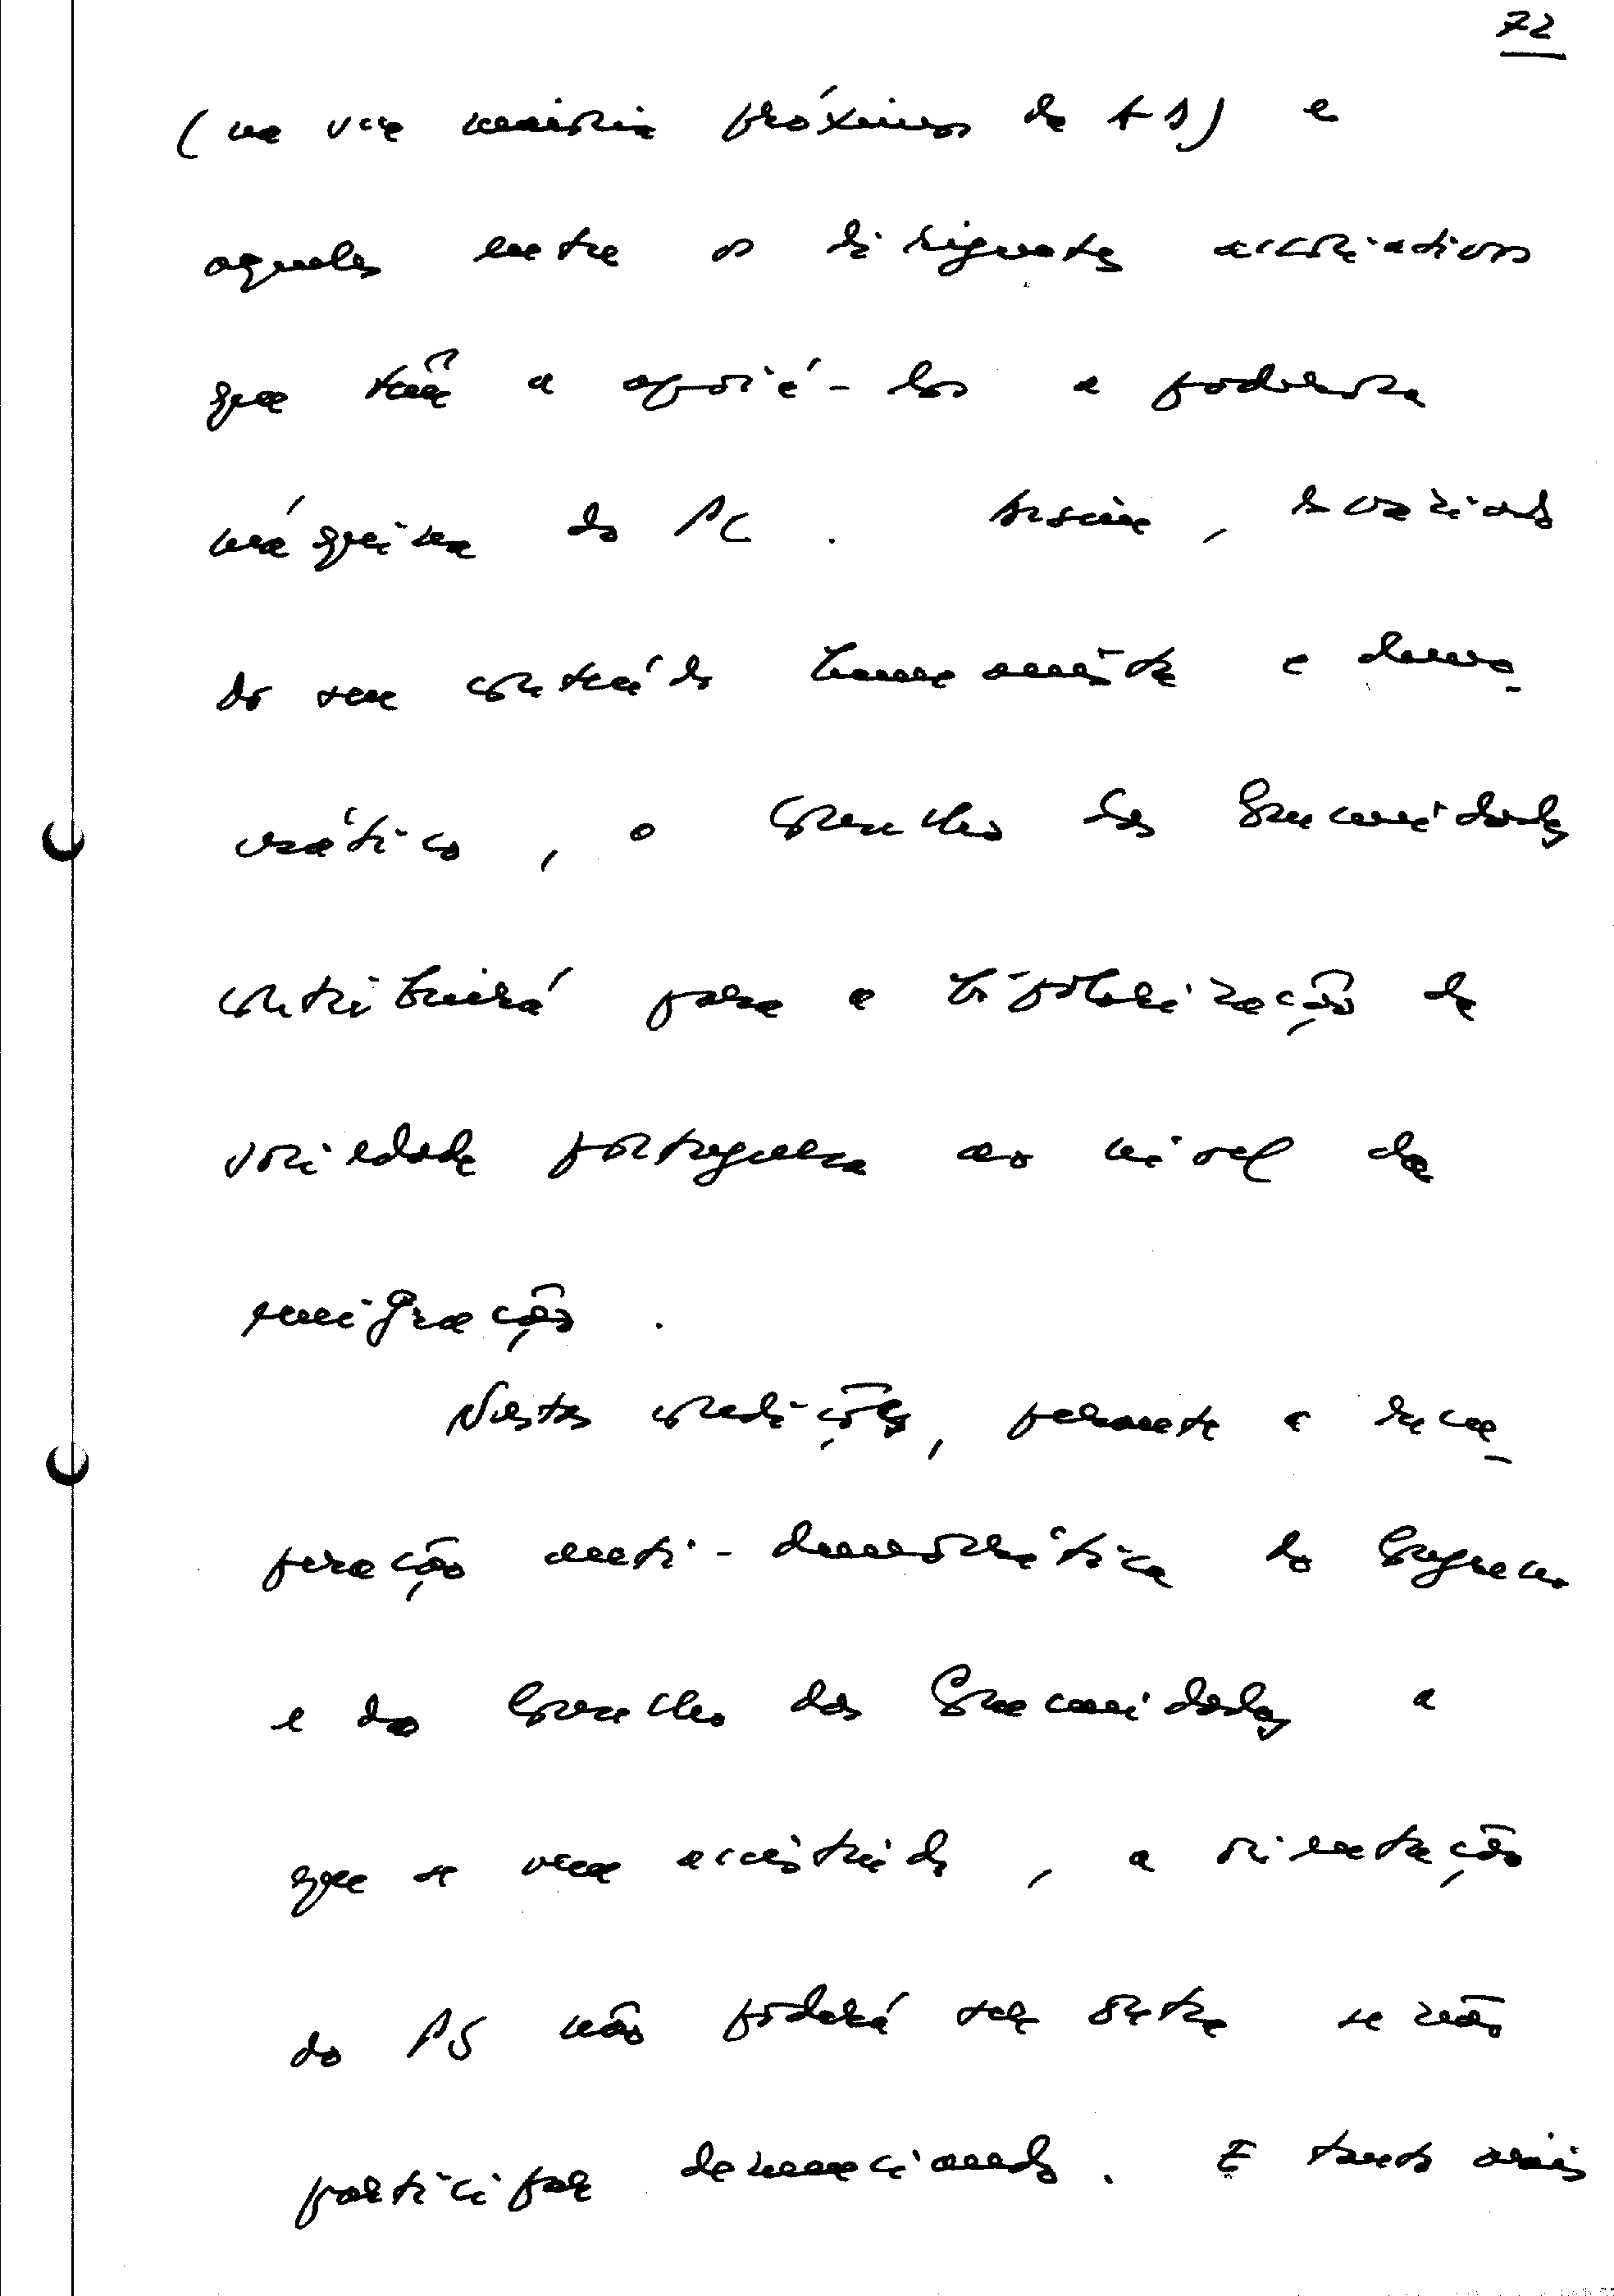 72
(na sua maioria próximos da AD) e
aqueles entre os dirigentes associativos
que têm a apoiá-los a poderosa
máquina do PC. Assim, esvaziado
do seu conteúdo humanista e demo-
crático, o Conselho das Comunidades
contribuirá para a bipolarização da
sociedade portuguesa ao nível da
emigração.
Nestas condições, perante a recu-
peração anti-democrática do Congresso
e do Conselho das Comunidades a
que se vem assistindo, a orientação
do PS não poderá ser outra senão
participar denunciando. E tanto mais